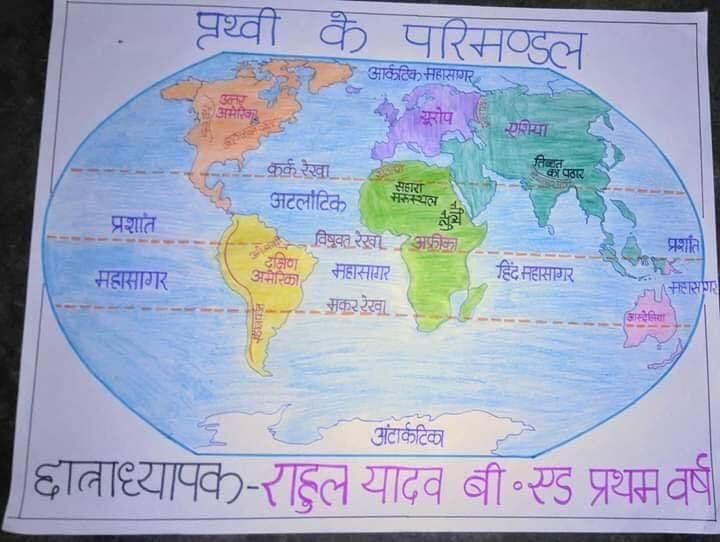 प्रथ्वी के परिमण्डल
आर्कटिक महासागर
उत्तर
अमेरिका
यूरोप
एशिया
तिब्बत
का पठार
कर्क रेखा
सहारा
मरुस्थल
अटलांटिक
प्रशांत
महासागर
विषुवत रेखा
अफ्रीका
प्रशांत
महासागर
दक्षिण
अमेरिका
महासागर
हिंद महासागर
मकर रेखा
आस्ट्रेलिया
अंटार्कटिका
छात्राध्यापक-राहुल यादव बी॰एड प्रथम वर्ष